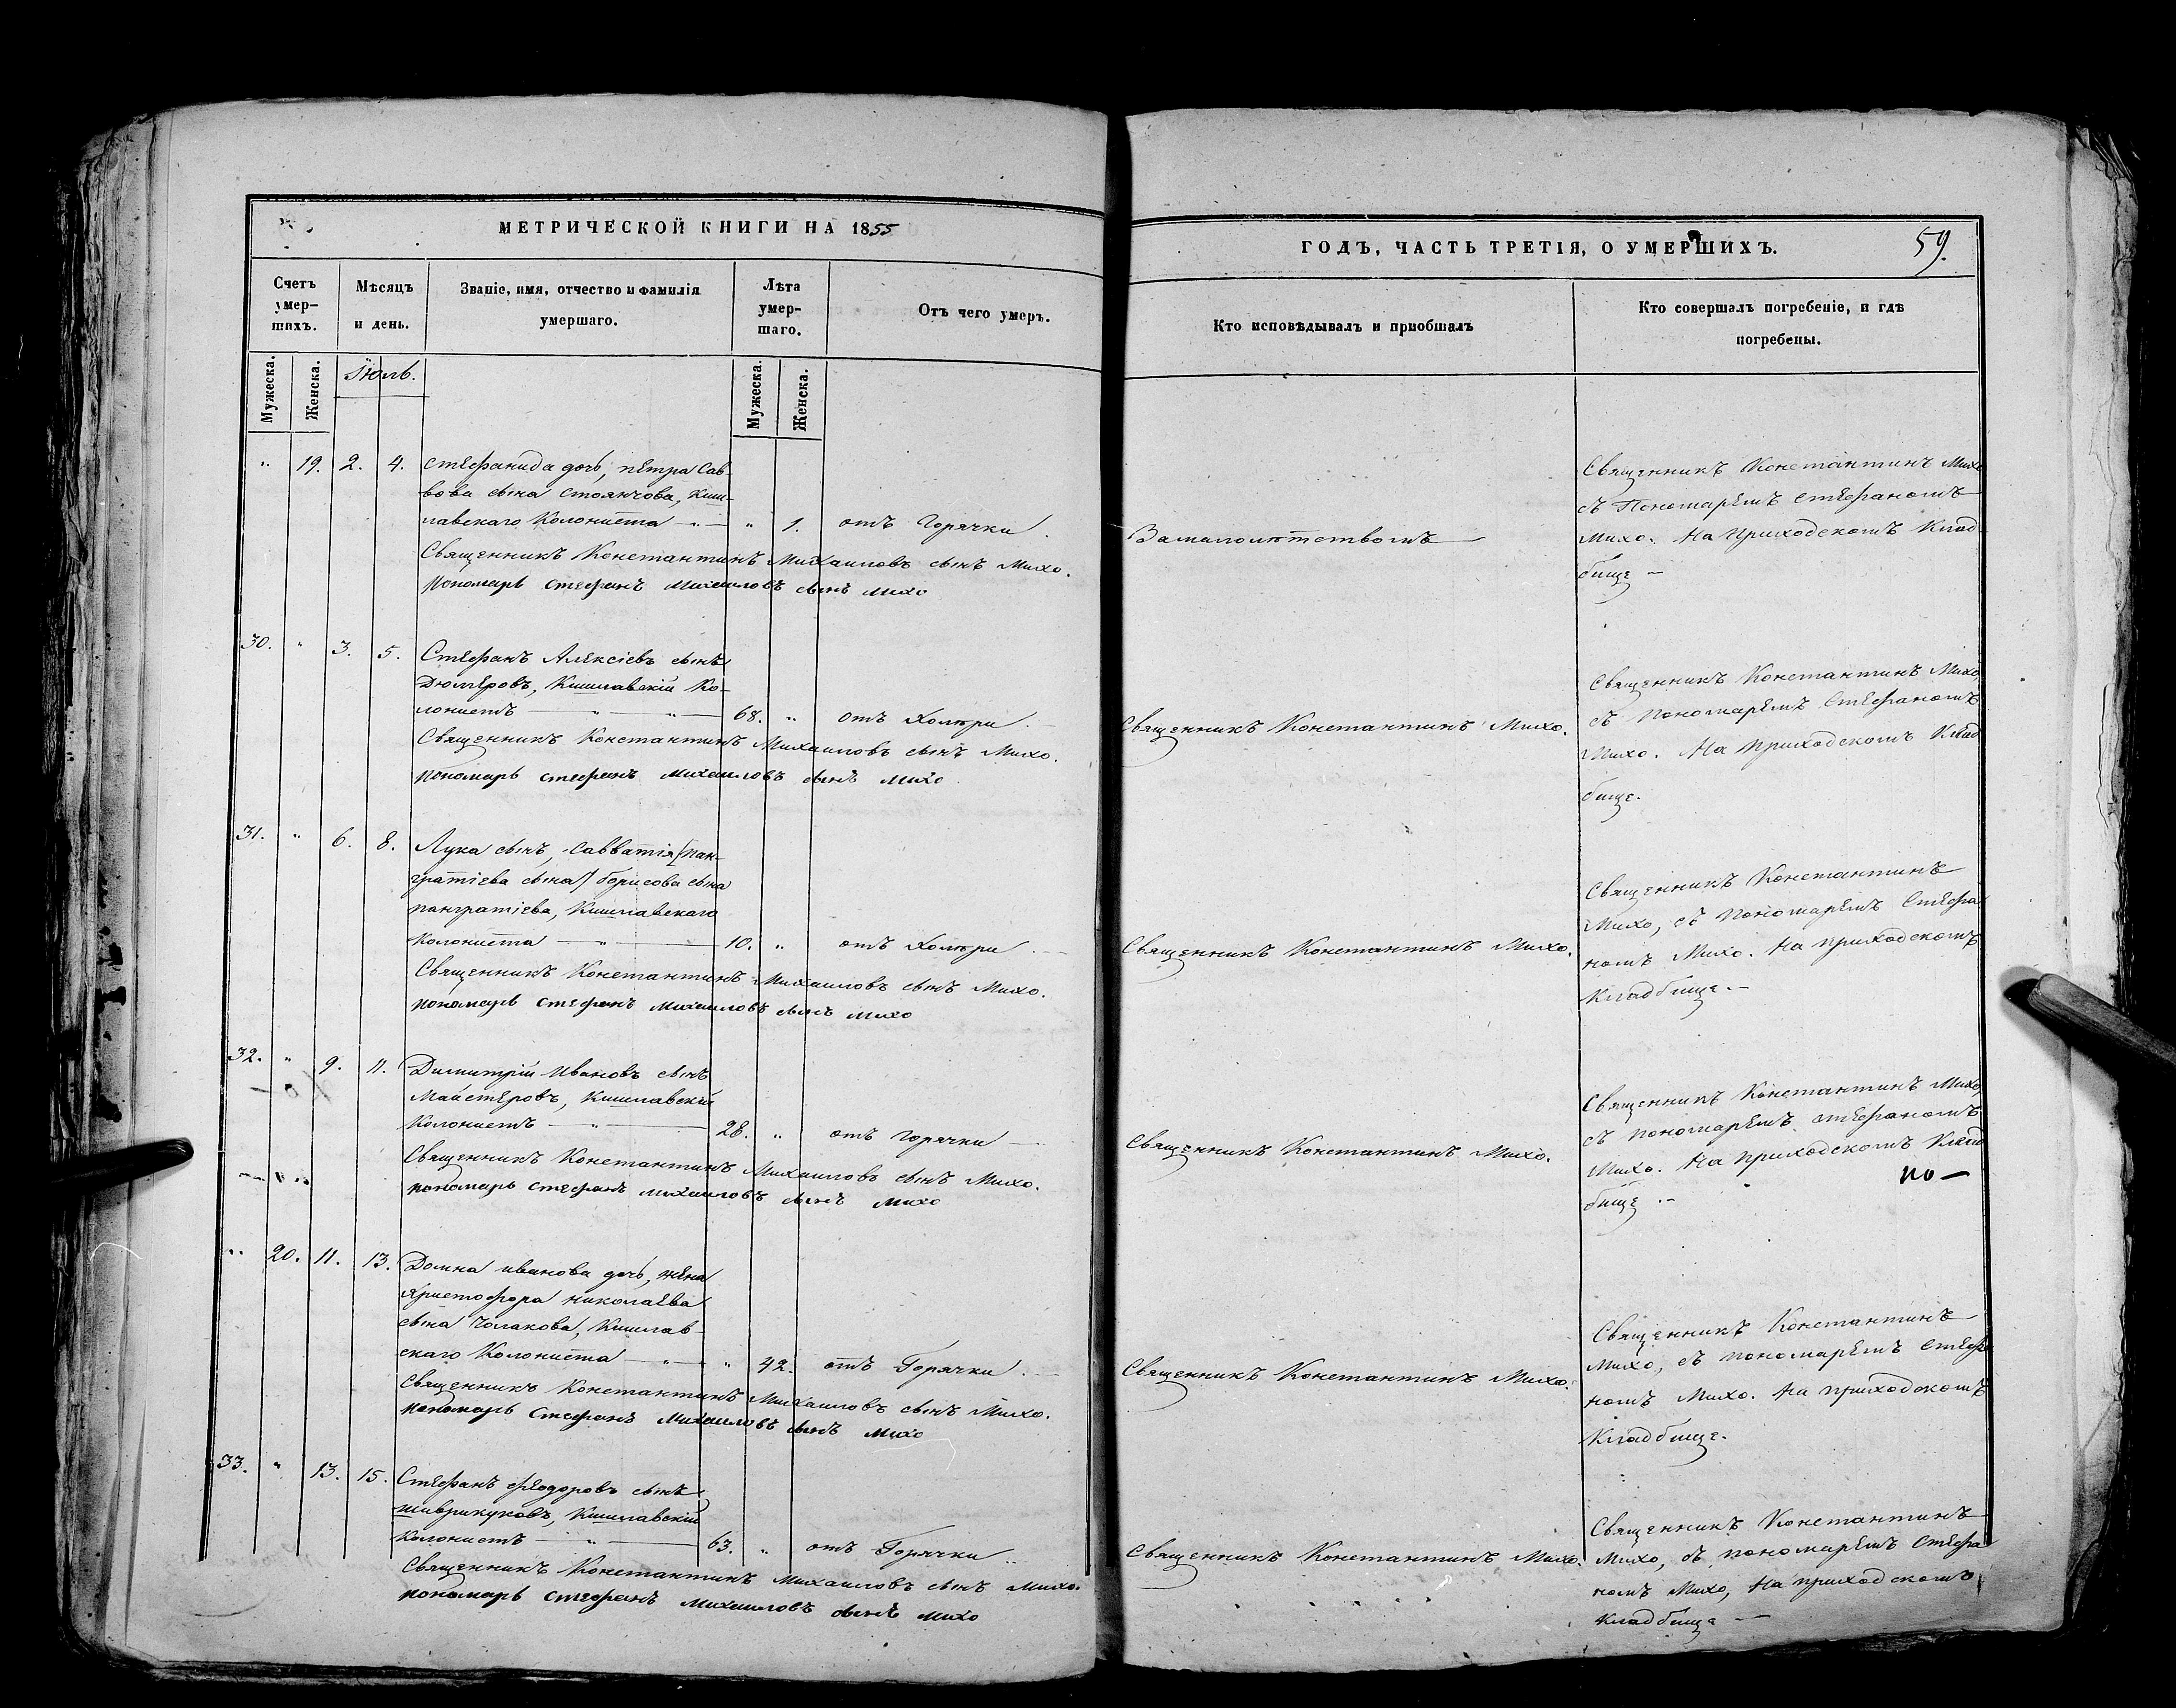 МЕТРИЧЕСКОЙ КНИГИ НА 1855
Счетъ умер-шихъ.
Мѣсяцъ и день.
Званіе, имя, отчество и фамилія умершаго.
Лѣта умер-шаго.
Отъ чего умеръ.
Мужеска.
Женска.
Іюль.
Мужеска.
Женска.
" 19. 2. 4. Стефанида дочь, Петра Сав-
вова сына Стоянчова, Киш-
лавскаго Колониста — " 1. отъ Горячки.
Священникъ Константинъ Михаиловъ сынъ Михо.
Пономарь Стефанъ Михаиловъ сынъ Михо
30. " 3. 5. Стефанъ Алексіевъ сынъ
Дюлгеровъ, Кишлавскій Ко-
лонистъ — " — " — 68. " отъ Холери.
Священникъ Константинъ Михаиловъ сынъ Михо.
Пономарь Стефанъ Михаиловъ сынъ Михо
31. " 6. 8. Лука сынъ, Савватія/Пан-
гратіева сына/ борисова сына
Пангратіева, Кишлавскаго
Колониста — " — 10. " отъ Холери.
Священникъ Константинъ Михаиловъ сынъ Михо.
Пономарь Стефанъ Михаиловъ сынъ Михо
32. " 9. 11. Димитрій Ивановъ сынъ
Майстеровъ, Кишлавскій
Колонистъ — " — 28. " отъ горячки —
Священникъ Константинъ Михаиловъ сынъ Михо.
Пономарь Стефанъ Михаиловъ сынъ Михо
" 20. 11. 13. Домна иванова дочь, жена
Христофора николаева
сына Чолакова, Кишлав-
скаго Колониста — " — " 42. отъ Горячки.
Священникъ Константинъ Михаиловъ сынъ Михо.
Пономарь Стефанъ Михаиловъ сынъ Михо
33. " 13. 15. Стефанъ Феодоровъ сынъ
Кишлавскій
Колонистъ — " — 63. " отъ Горячки..
Священникъ Константинъ Михаиловъ сынъ Михо.
Пономарь Стефанъ Михаиловъ сынъ Михо
ГОДЪ, ЧАСТЬ ТРЕТІЯ, О УМЕРШИХЪ. 59.
Кто исповѣдывалъ и пріобщалъ
Кто совершалъ погребеніе, и гдѣ погребены.
Замалолѣтствомъ —
Священникъ Константинъ Михо
съ Пономаремъ Стефаномъ
Михо. На Приходскомъ Клад
бище —
Священникъ Константинъ Михо.
Священникъ Константинъ Михо,
съ Пономаремъ Стефаномъ
Михо. На Приходскомъ Клад
бище.
Священникъ Константинъ Михо.
Священникъ Константинъ
Михо, съ Пономаремъ Стефа
номъ Михо. На Приходскомъ
Кладбище. —
Священникъ Константинъ Михо.
Священникъ Константинъ Михо,
съ пономаремъ Стефаномъ
Михо. На Приходскомъ Клад
по —
бище. —
Священникъ Константинъ Михо.
Священникъ Константинъ
Михо, съ Пономаремъ Стефа
номъ Михо. На приходскомъ
Кладбище.
Священникъ Константинъ Михо.
Священникъ Константинъ
Михо, съ Пономаремъ Стефа
номъ Михо, На приходскомъ
Кладбище —